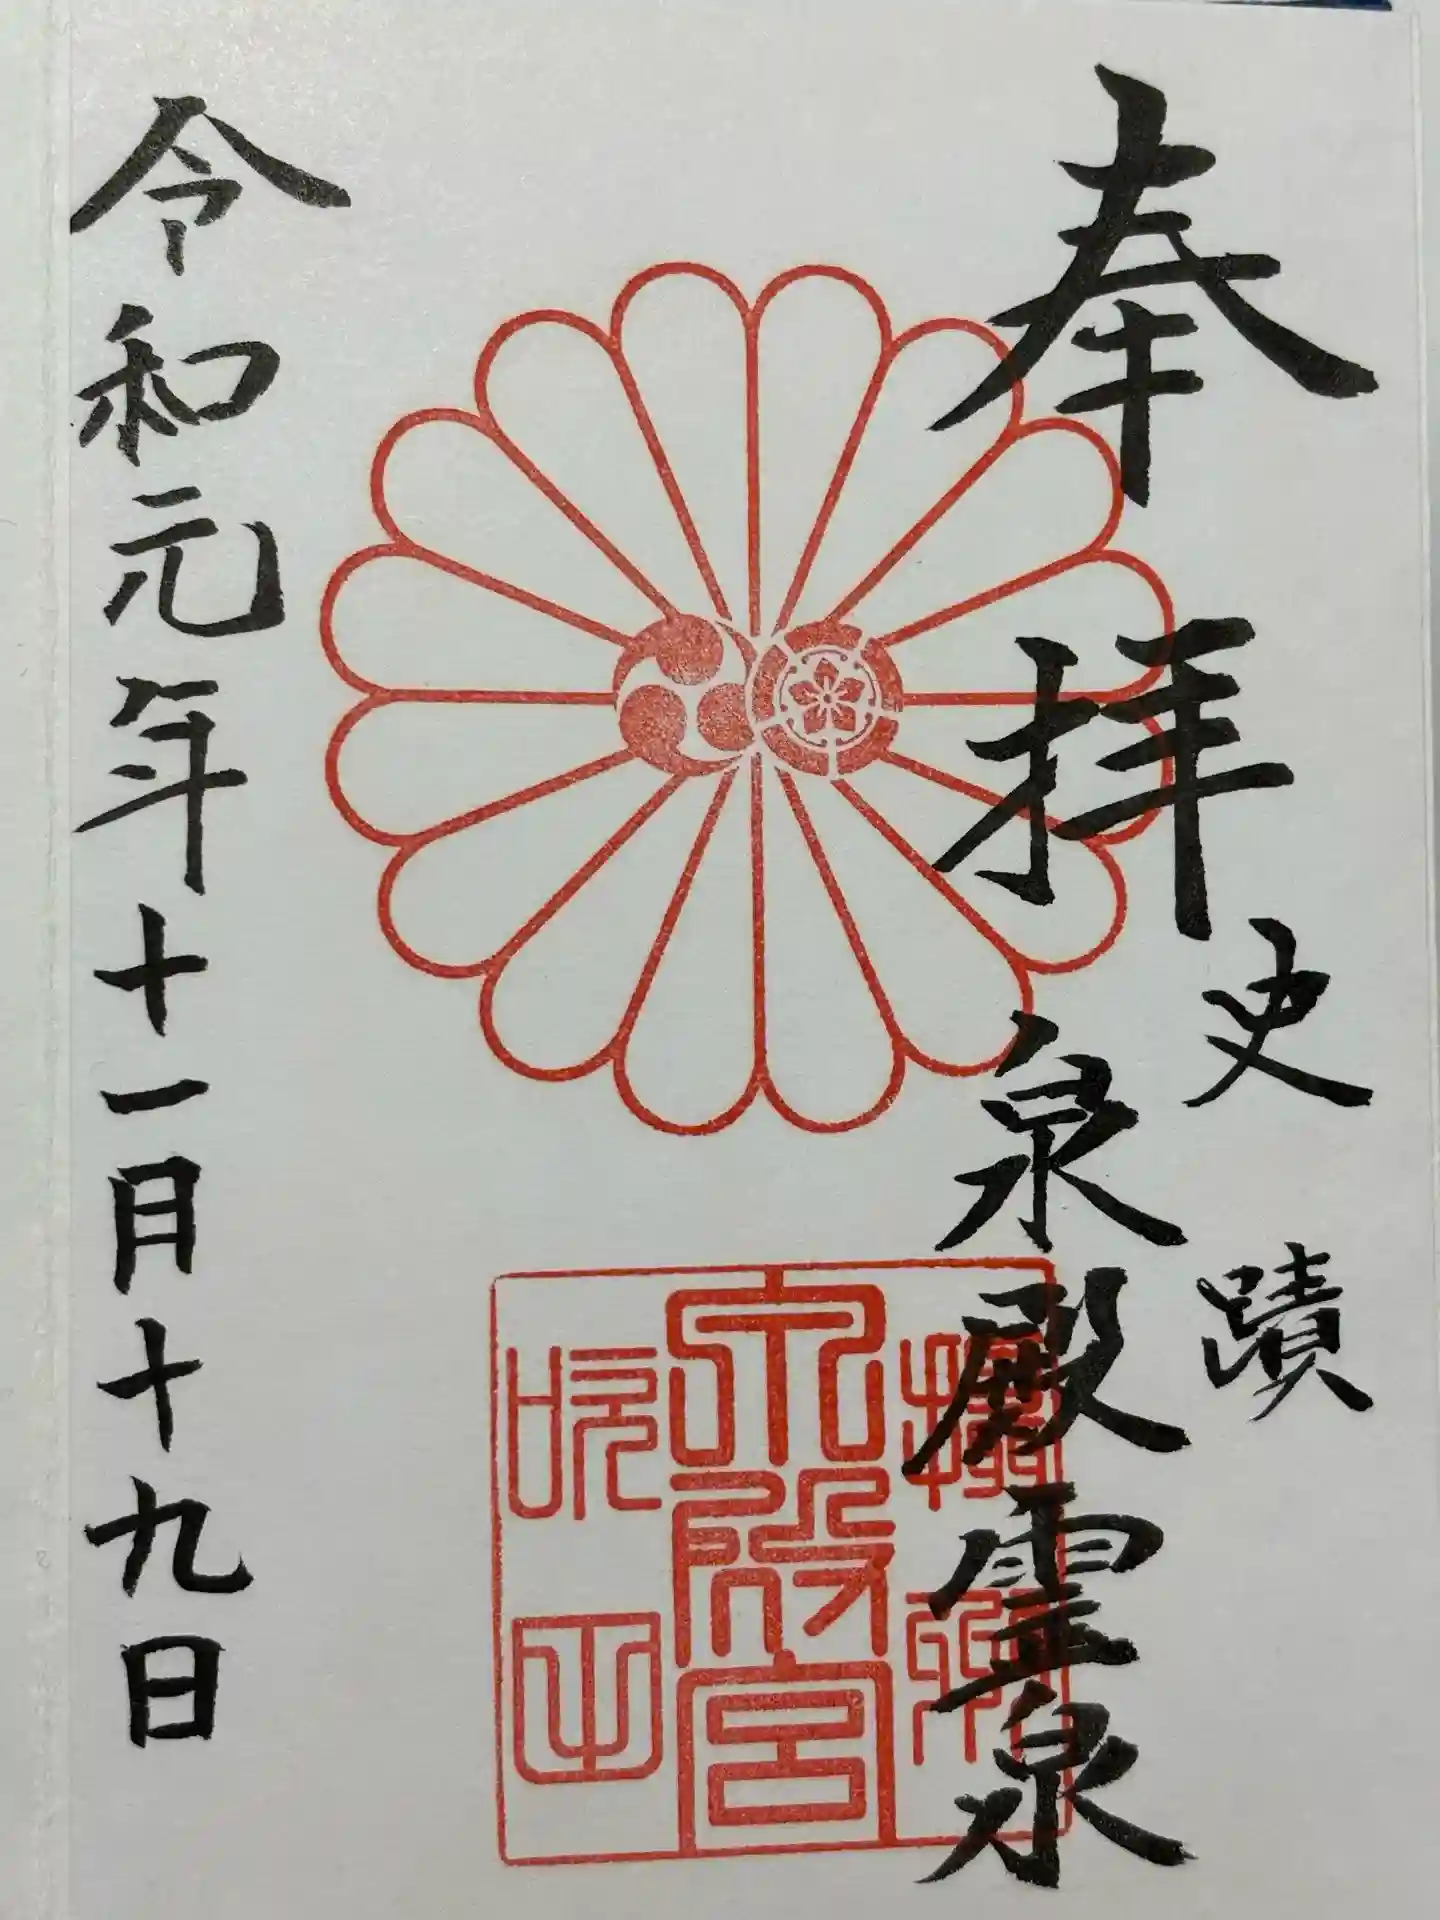 奉拝
史蹟
泉殿霊泉
泉殿宮
令和元年十一月十九日